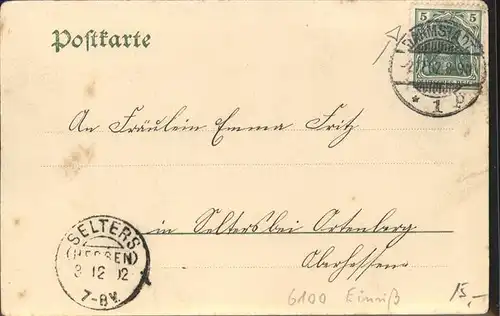 Postkarte
5 5
DARMSTADT
* 1
An Fräulein Emma Fritz
in Selters bei Ortenberg
Oberhessen
SELTERS
(HESSEN)
3 12 02
7-8V.
6100 Einriß
15,-